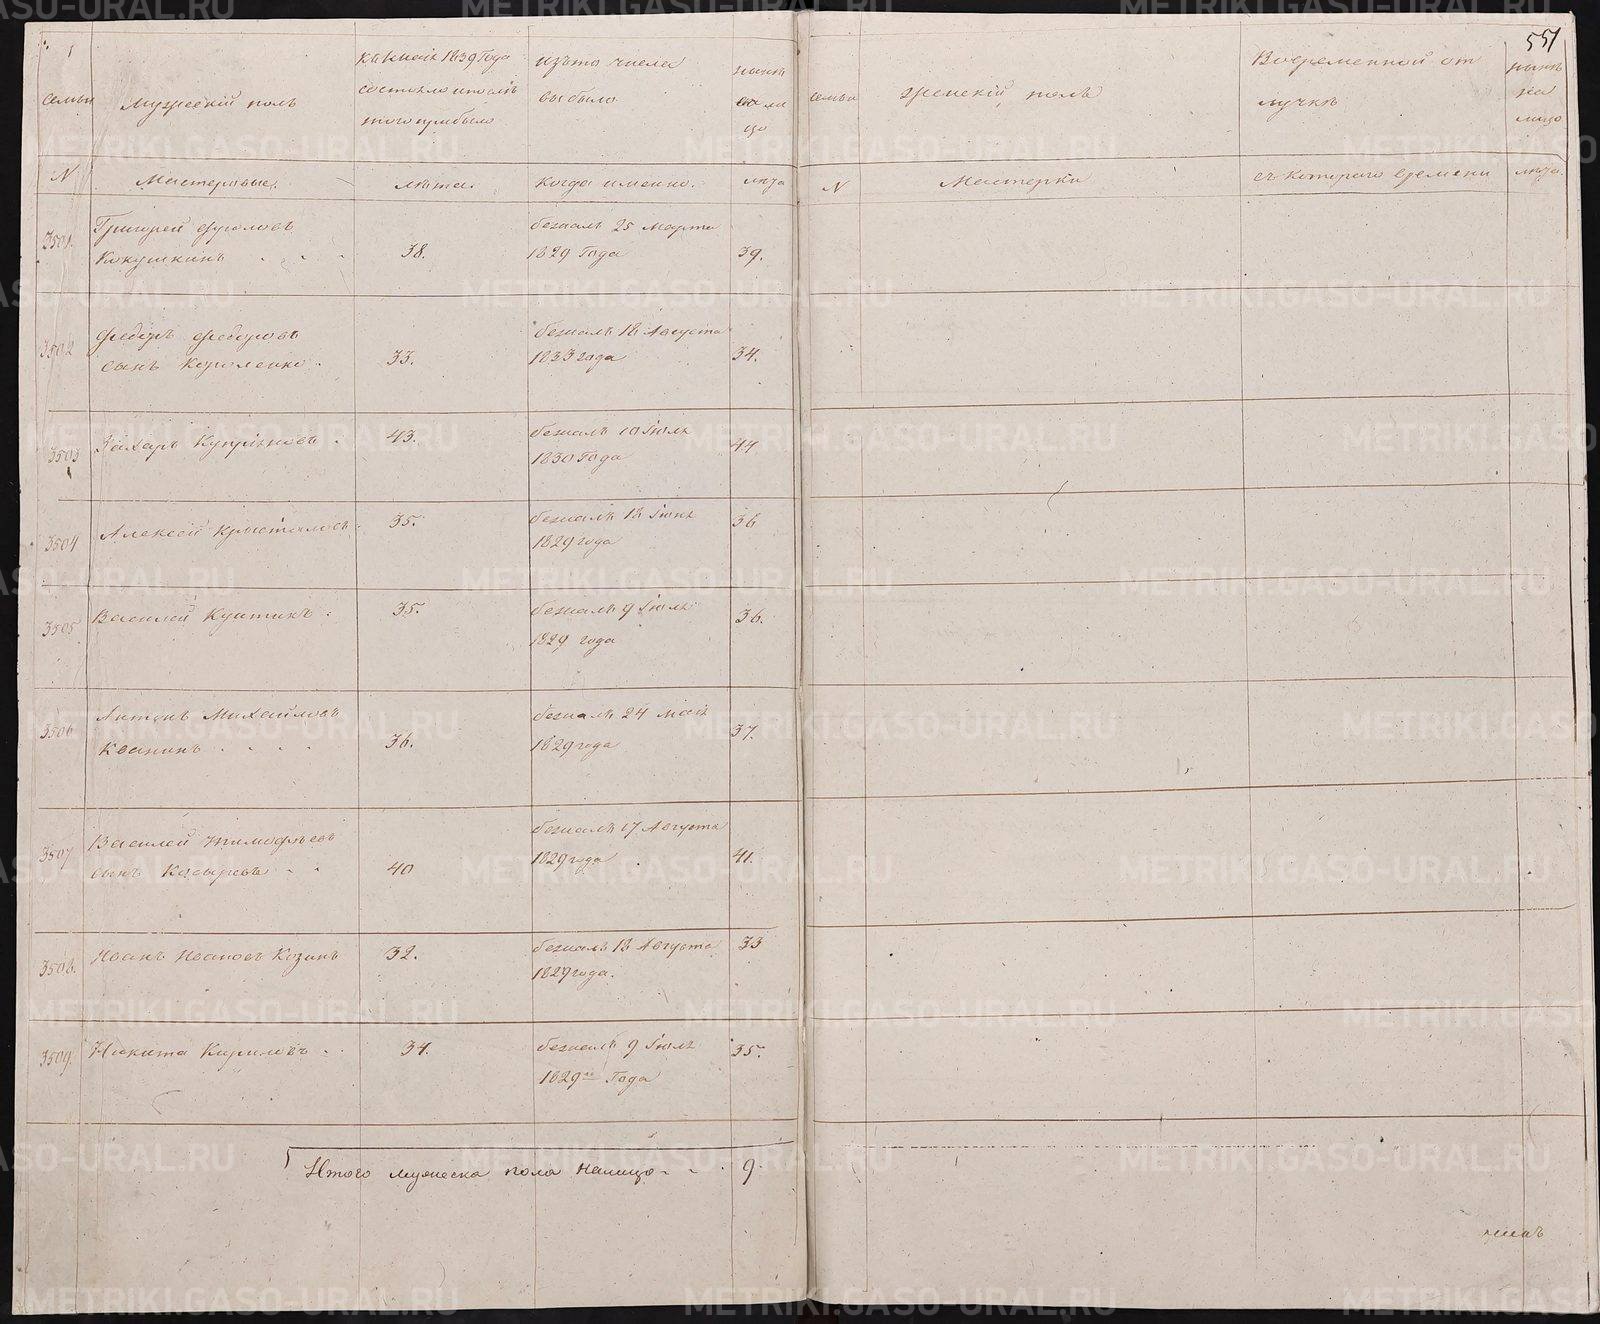 551
семьи
Мужескій полъ
1839 Года
состояло и после
того прибыло
изъ то числа
выбыло
ныне
на ли
цо
семьи
женскій полъ
Вовременной от
лучке
ныне
на
лицо
N
Мастеровые.
лета.
когда именно.
лета
N
Мастерки
съ котораго времени
лета.
3501.
Григорей Фроловъ
Кокушкинъ
38.
бежалъ 25 Марта
1829 Года
39.
3502
Федоръ Федоровъ
сынъ Короленко.
33.
бежалъ 18 Августа
1833 года
34.
3503
Захаръ Купріновъ.
43.
бежалъ 10 Іюля
1830 Года
44
3504
Алексей Крысталовъ
35.
бежалъ 18
1829 года
36
3505
Василей
35.
бежалъ 9 Іюля
1829 года
36.
3506
Антонъ Михайловъ
Квонинъ
36.
бежалъ 24 мая
1829 года
37.
3507
Василей Тимофеевъ
сынъ Косыревъ
40
бежалъ 17 Августа
1829 года
41.
3508.
Иванъ Ивановъ Козинъ
32.
бежалъ 18 Августа
1829 года.
33
3509.
Никита Кириловъ
34.
бежалъ 9 Іюля
1829го Года
35.
Итого мужеска пола налицо 9.
METRIKI.GASO-URAL.RU